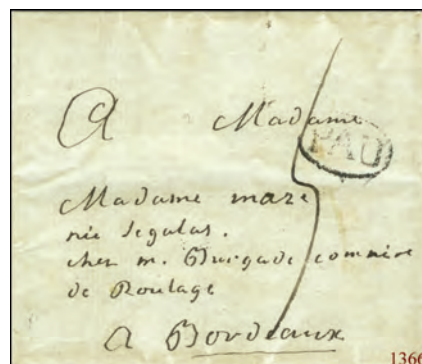 A Madame
PAU
Madame maze
née Segalas.
chez m. Burgade commire
de Roulage
A Bordeaux
1366